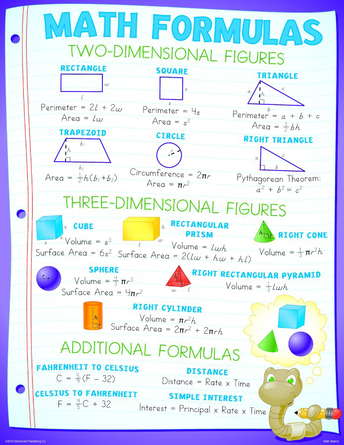 MATH FORMULAS
TWO-DIMENSIONAL FIGURES
RECTANGLE
Perimeter = 2l + 2w
Area = lw
SQUARE
Perimeter = 4s
Area = s²
TRIANGLE
Perimeter = a + b + c
Area = ½bh
TRAPEZOID
Area = ½h(b₁+b₂)
CIRCLE
Circumference = 2πr
Area = πr²
RIGHT TRIANGLE
Pythagorean Theorem:
a² + b² = c²
THREE-DIMENSIONAL FIGURES
CUBE
Volume = s³
Surface Area = 6s²
RECTANGULAR
PRISM
Volume = lwh
Surface Area = 2(lw + hw + hl)
RIGHT CONE
Volume = ⅓πr²h
SPHERE
Volume = 4/3 πr³
Surface Area = 4πr²
RIGHT RECTANGULAR PYRAMID
Volume = ⅓lwh
RIGHT CYLINDER
Volume = πr²h
Surface Area = 2πr² + 2πrh
ADDITIONAL FORMULAS
FAHRENHEIT TO CELSIUS
C = 5/9(F - 32)
CELSIUS TO FAHRENHEIT
F = 9/5C + 32
DISTANCE
Distance = Rate x Time
SIMPLE INTEREST
Interest = Principal x Rate x Time